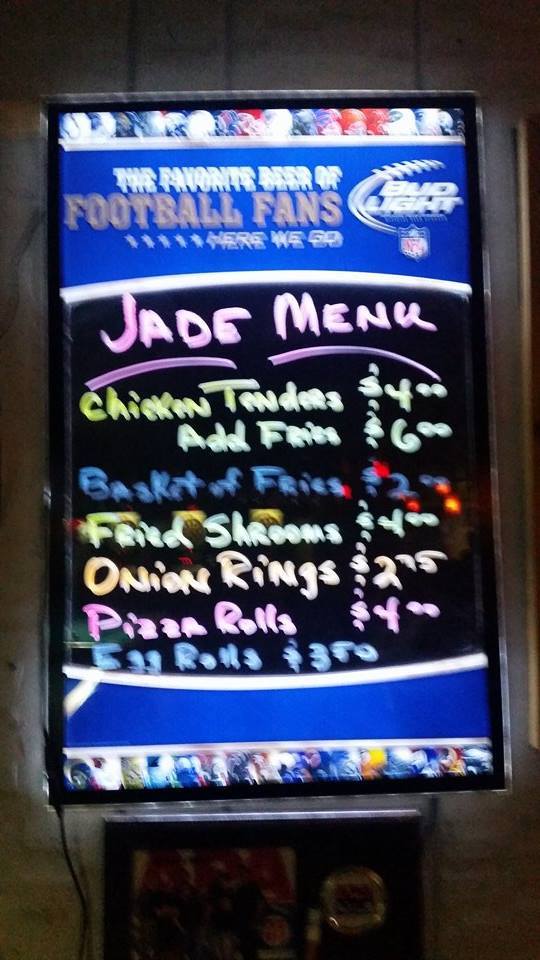 THE FAVORITE BEER OF
FOOTBALL FANS
HERE WE GO
BUD
LIGHT
NFL
JADE MENU
Chicken Tenders $4.00
Add Fries $6.00
Basket of Fries $2.00
Fried Shrooms $4.00
Onion Rings $2.75
Pizza Rolls $4.00
Egg Rolls $3.50